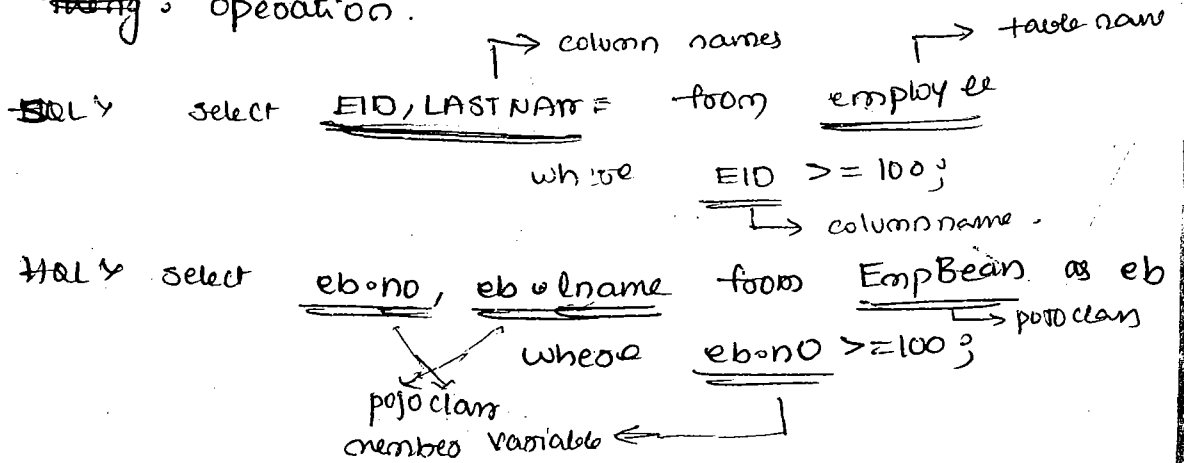 operation.
→ column names → table name
SQL> select EID, LASTNAME from employee
where EID >= 100;
→ column name.
HQL> select eb.no, eb.lname from EmpBean as eb
→ pojo class
where eb.no >=100;
pojo class
member variable ←